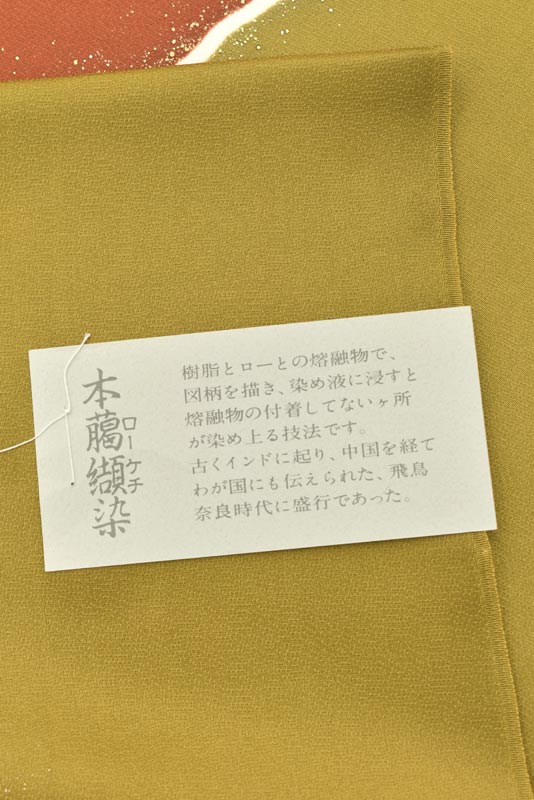 本﨟纈染
ローケチ
樹脂とローとの熔融物で、
図柄を描き、染め液に浸すと
熔融物の付着してないヶ所
が染め上る技法です。
古くインドに起り、中国を経て
わが国にも伝えられた、飛鳥
奈良時代に盛行であった。